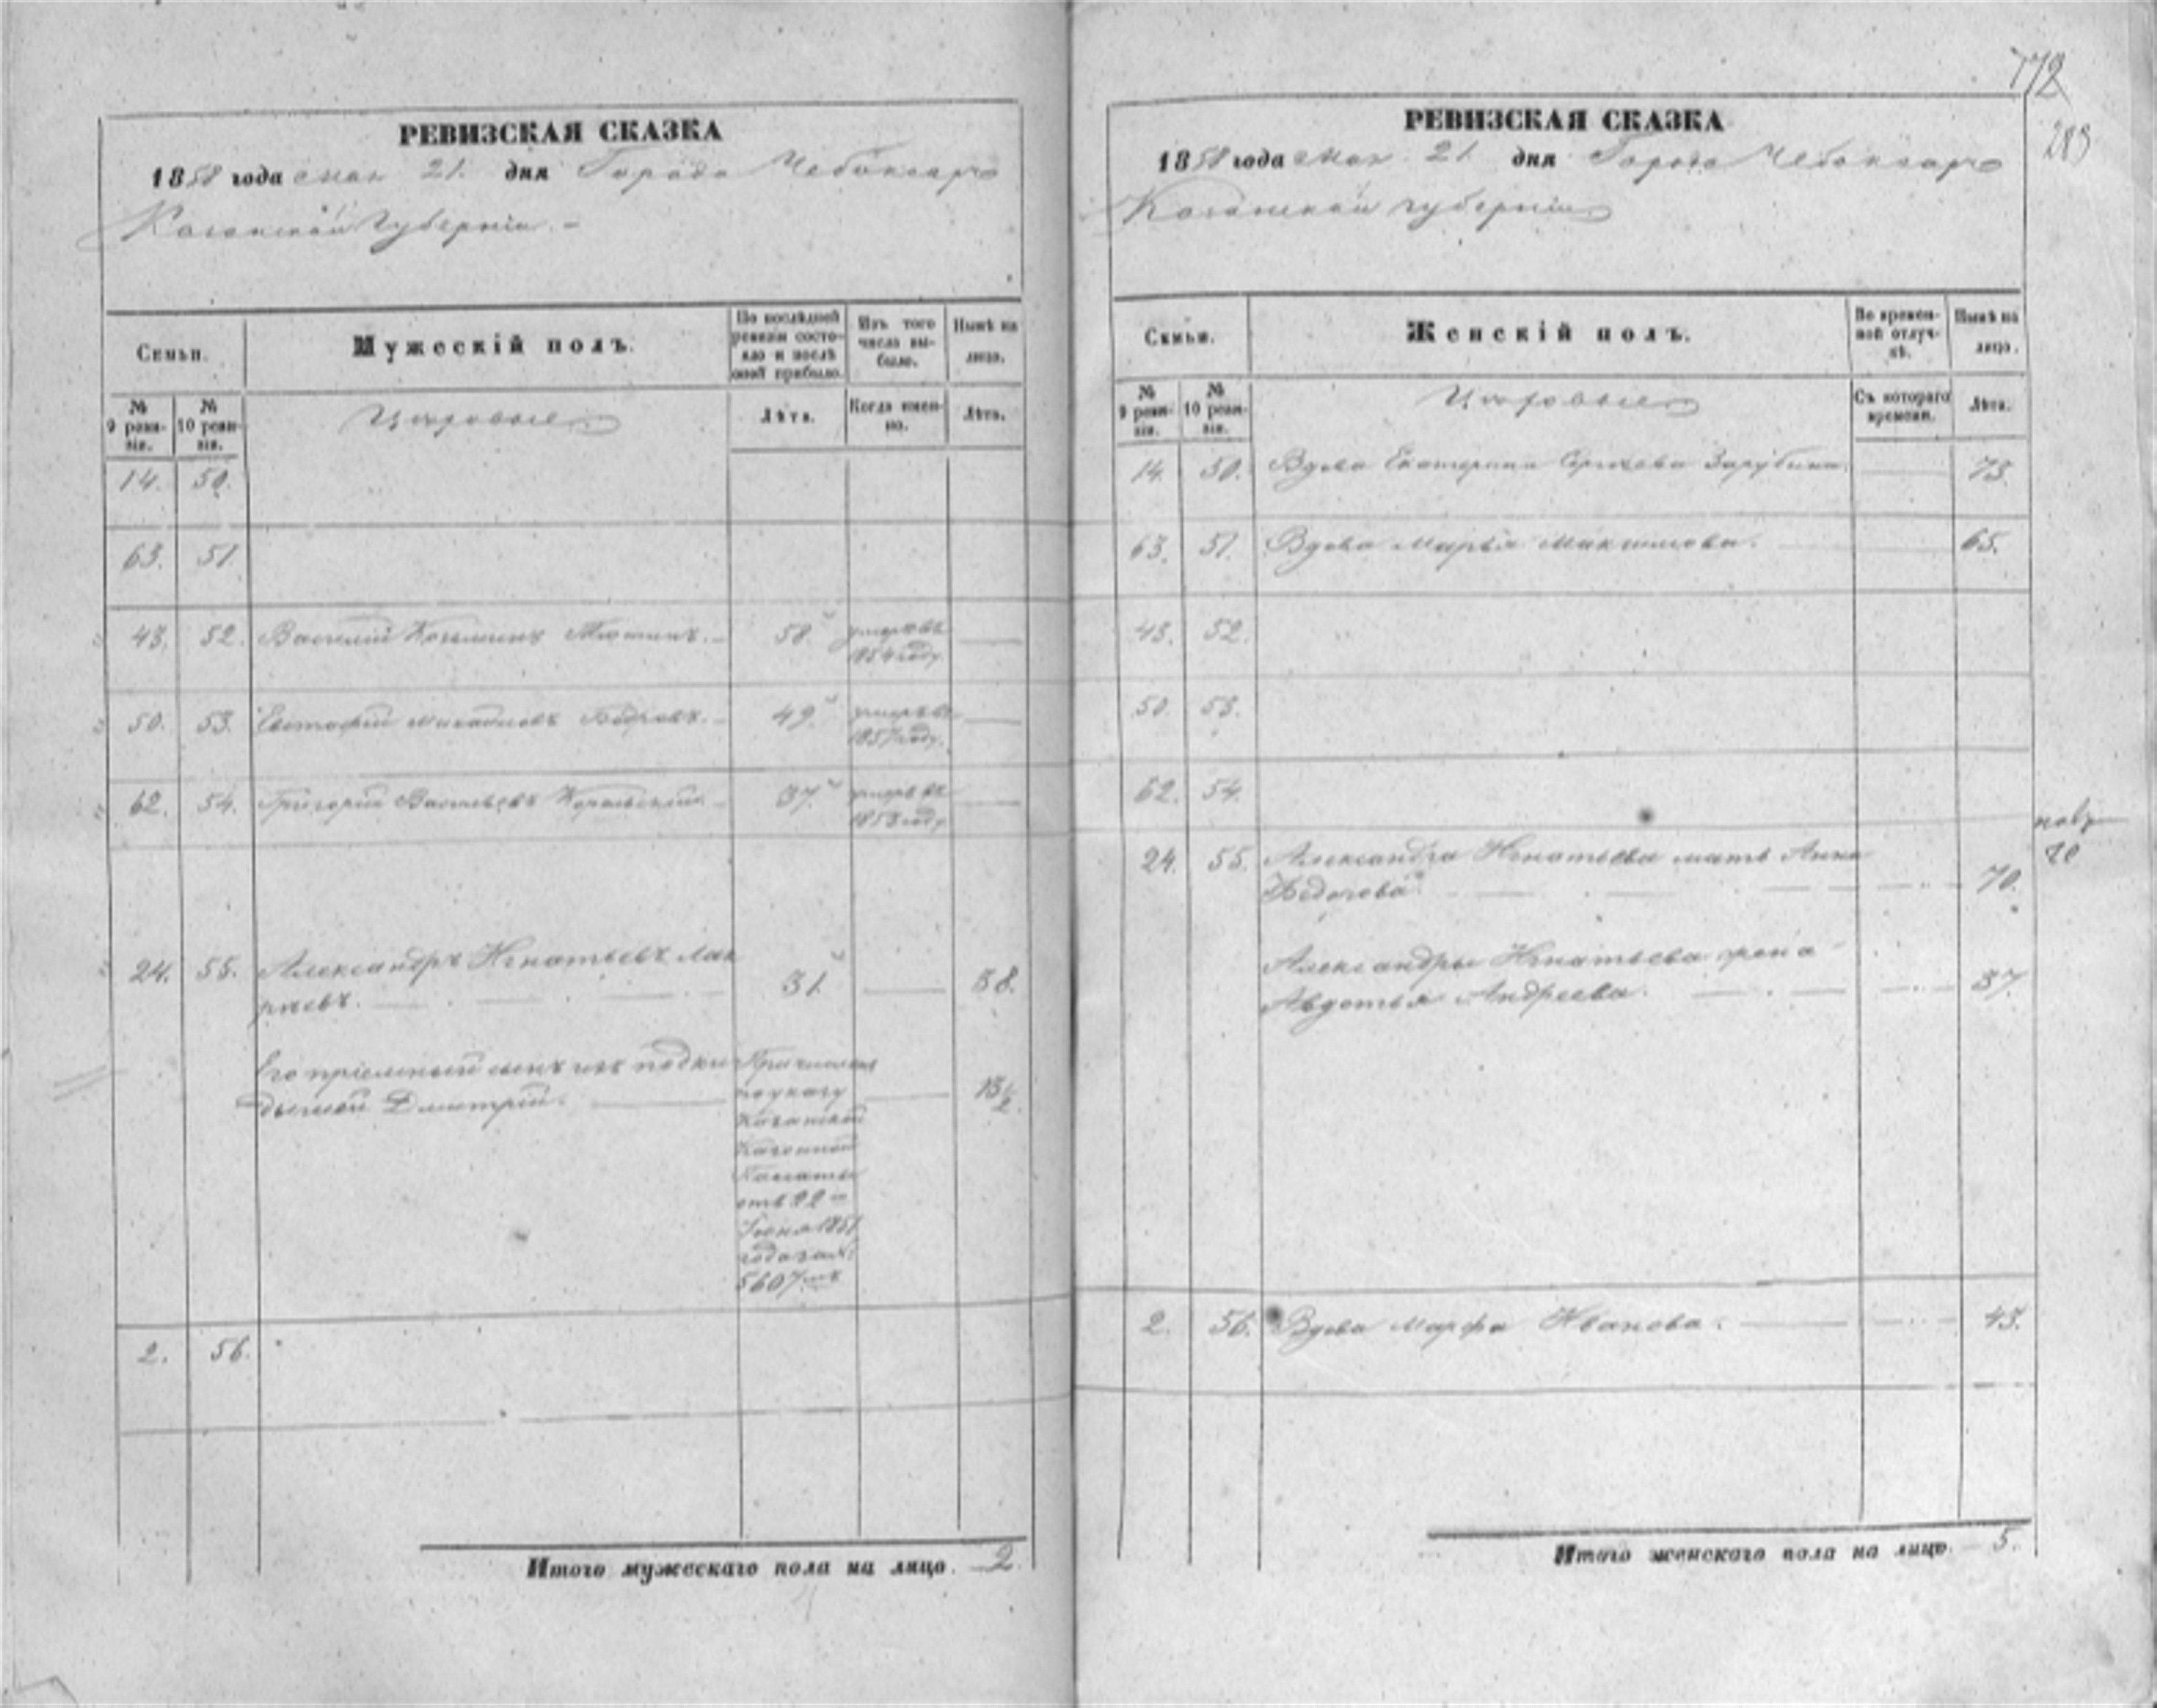 РЕВИЗСКАЯ СКАЗКА
1858 года мая 21. дня Города Чебоксаръ
Казанской Губерніи. -
Семьи.
Мужескій полъ.
По послѣдней ревизіи состояло и послѣ оной прибыло.
Изъ того числа выбыло.
Нынѣ на лицо.
№ 9 ревизіи.
№ 10 ревизіи.
Цеховые
Лѣта.
Когда именно.
Лѣта.
14. 50.
63. 51
43. 52. Василий Козьминъ 58. умеръ въ
1854 году.
50. 53. Евстафий Михайловъ Бобровъ. 49. умеръ въ
1857 году.
62. 54. Григорий Васильевъ 37. умеръ въ
1853 году
24. 55. Александръ Игнатьевъ Лаз
ревъ. 31. 38.
Его пріемный сынъ изъ подки
дышей Дмитрій. 13 1/2.
Причисленъ
по указу
Казанской
Казенной
Палаты
отъ 22
1851
года за №
5607.
2. 56.
Итого мужескаго пола на лицо. 2.
772
283
РЕВИЗСКАЯ СКАЗКА
1858 года мая 21. дня Города Чебоксаръ
Казанской губерніи
Семьи.
Женскій полъ.
Во временной отлучкѣ.
Нынѣ на лицо.
№ 9 ревизіи.
№ 10 ревизіи.
Цеховые
Съ котораго времени.
Лѣта.
14. 50. Вдова Екатерина Сергѣева Зарубина. 73.
63. 51. Вдова Марья Максимова. 65.
43. 52.
50. 53.
62. 54.
24. 55. Александра Игнатьева мать Анна
Ѳедорова. 70.
Александры Игнатьева жена
Авдотья Андреева. 37.
2. 56. Вдова Марфа Иванова. 43.
Итого женскаго пола на лицо. 5.